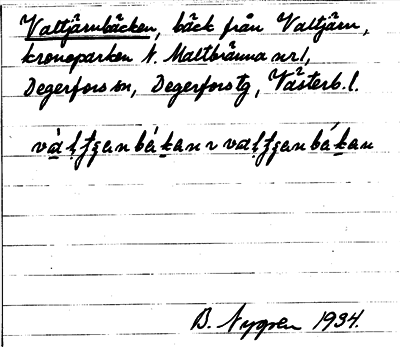 Valtjärnbäcken, bäck från Valtjärn,
kronoparken N. Maltbränna nr 1,
Degerfors sn, Degerfors tg, Västerb. l.
B. Nygren 1934.